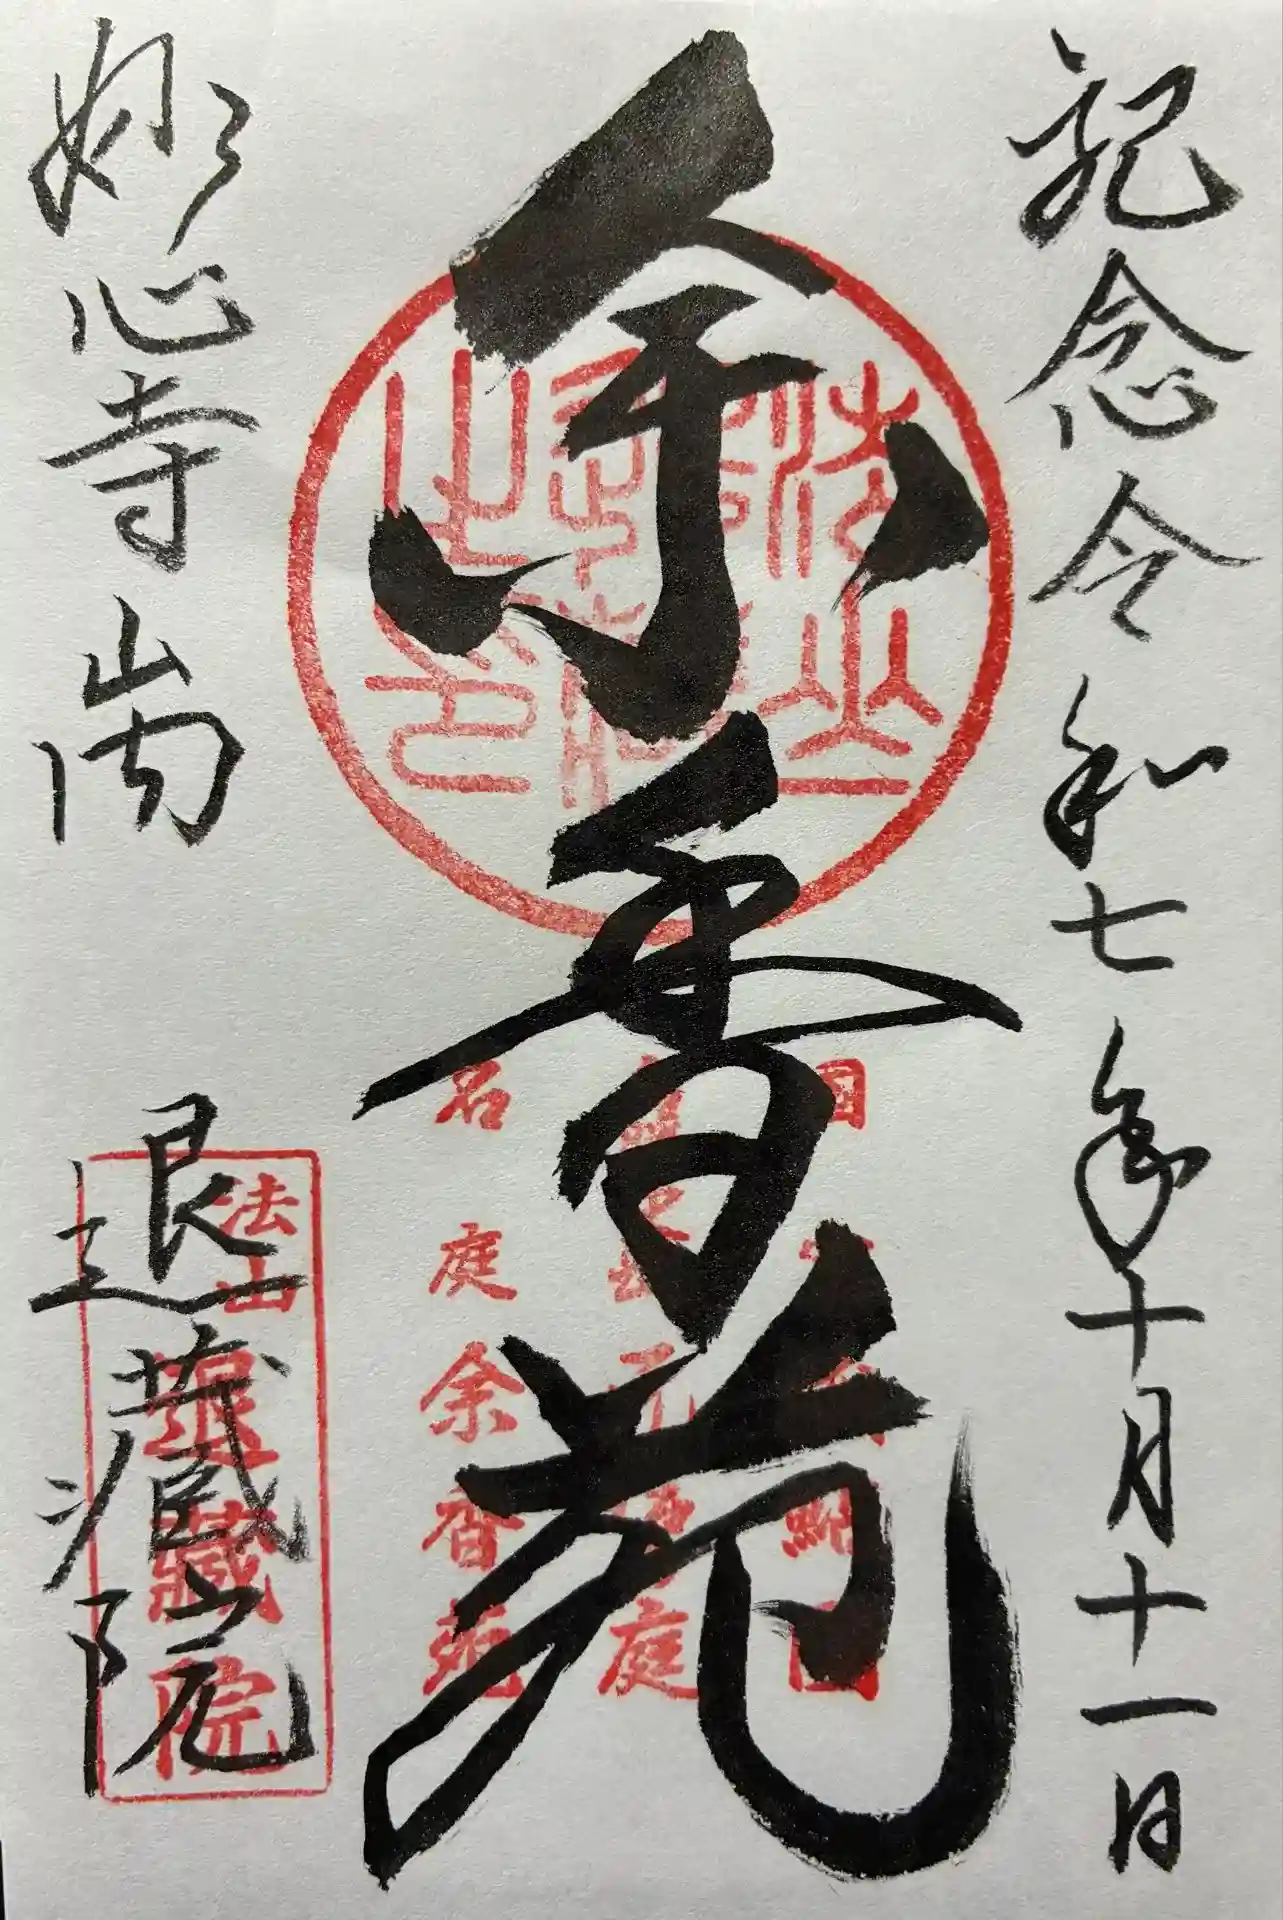 記念 令和七年十月十一日
余香苑
妙心寺山内
退蔵院
名庭余香苑
法山
退藏院